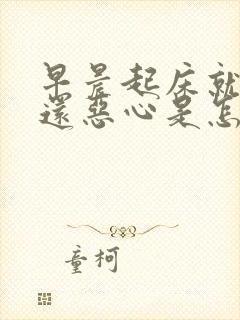 早晨起床就
還惡心是怎
童柯